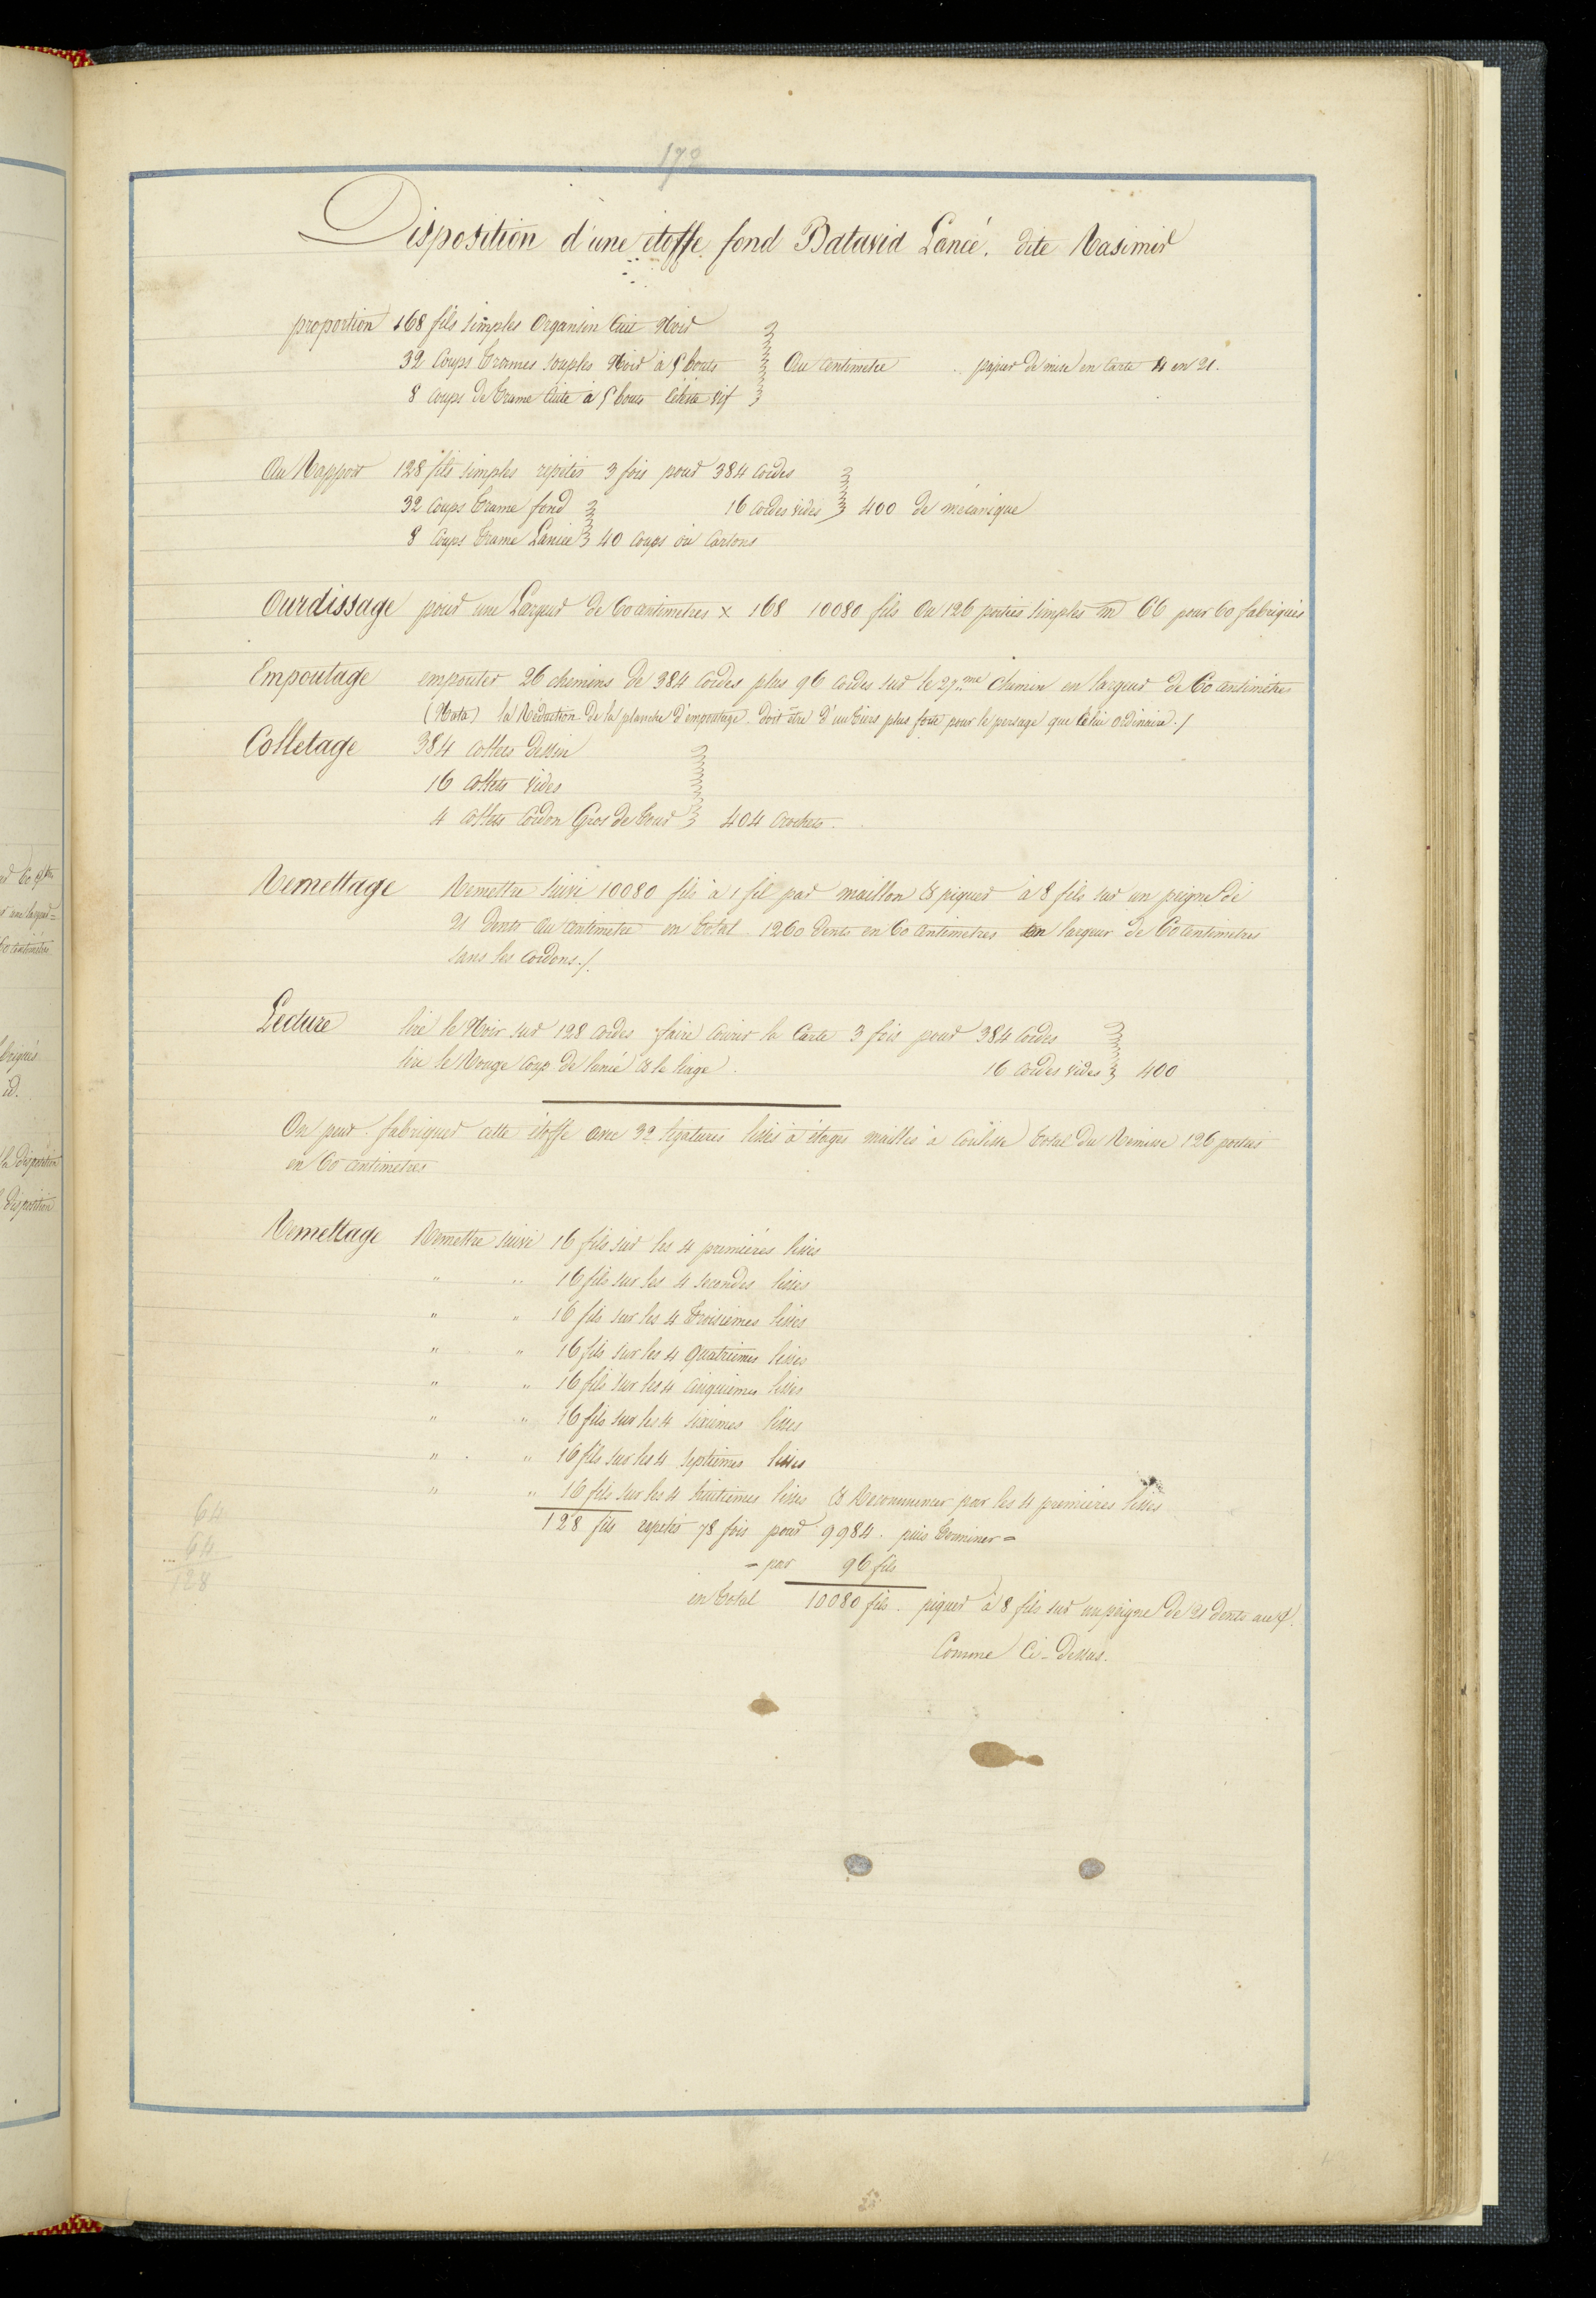 172
Disposition d'une étoffe fond Batavia Lancé. dite Rasimir
proportion 168 fils simples Organsin Cuit Noir
32 Coups Trames souples Noir à 5 bouts Au Centimetre papier de mise en Carte 4 en 21.
8 Coups de Trame Cuite à 5 bouts Céleste vif
Au Rapport 128 fils simples repétés 3 fois pour 384 Cordes
32 Coups Trame fond 16 Cordes vides 400 de mécanique
8 Coups Trame Lancée 40 Coups ou Cartons
Ourdissage pour une Largeur de 60 Centimetres x 168 10080 fils Ou 126 portées simples m 66 pour 60 fabriqués
Empoutage empouter 26 chemins de 384 Cordes plus 96 Cordes sur le 27me Chemin en largeur de 60 Centimètres
(Nota) la Réduction de la planche d'empoutage doit être d'un tiers plus forte pour le persage que Celui Ordinaire./
Colletage 384 Collets dessin
16 Collets vides
4 Collets Cordon Gros de Tour 404 Crochets.
Remettage Remettre Suivi 10080 fils à 1 fil par maillon & piquer à 8 fils sur un peigne de
21 Dents au Centimetre en Total 1260 Dents en 60 Centimetres en largeur de 60 Centimetres
sans les Cordons./.
Lecture lire le Noir sur 128 Cordes faire Courir la Carte 3 fois pour 384 Cordes
lire le Rouge Coup de lancé & le liage. 16 Cordes vides 400
On peut fabriquer cette étoffe avec 32 ligatures lisses à étages mailles à Coulisse Total du Remisse 126 portées
en 60 Centimetres
Remettage Remettre suivi 16 fils sur les 4 premières lisses
" " 16 fils sur les 4 secondes lisses
" " 16 fils sur les 4 Troisiemes lisses
" " 16 fils sur les 4 Quatriemes lisses
" " 16 fils sur les 4 Cinquiemes lisses
" " 16 fils sur les 4 sixiemes lisses
" " 16 fils sur les 4 septiemes lisses
" " 16 fils sur les 4 huitiemes lisses & Recommencer par les 4 premieres lisses
128 fils repétés 78 fois pour 9984. puis Terminer =
= par 96 fils
en Total 10080 fils. piquer à 8 fils sur un peigne de 21 dents au
Comme Ci-Dessus.
64
64
128
60 Centimetres
id.
la disposition
disposition